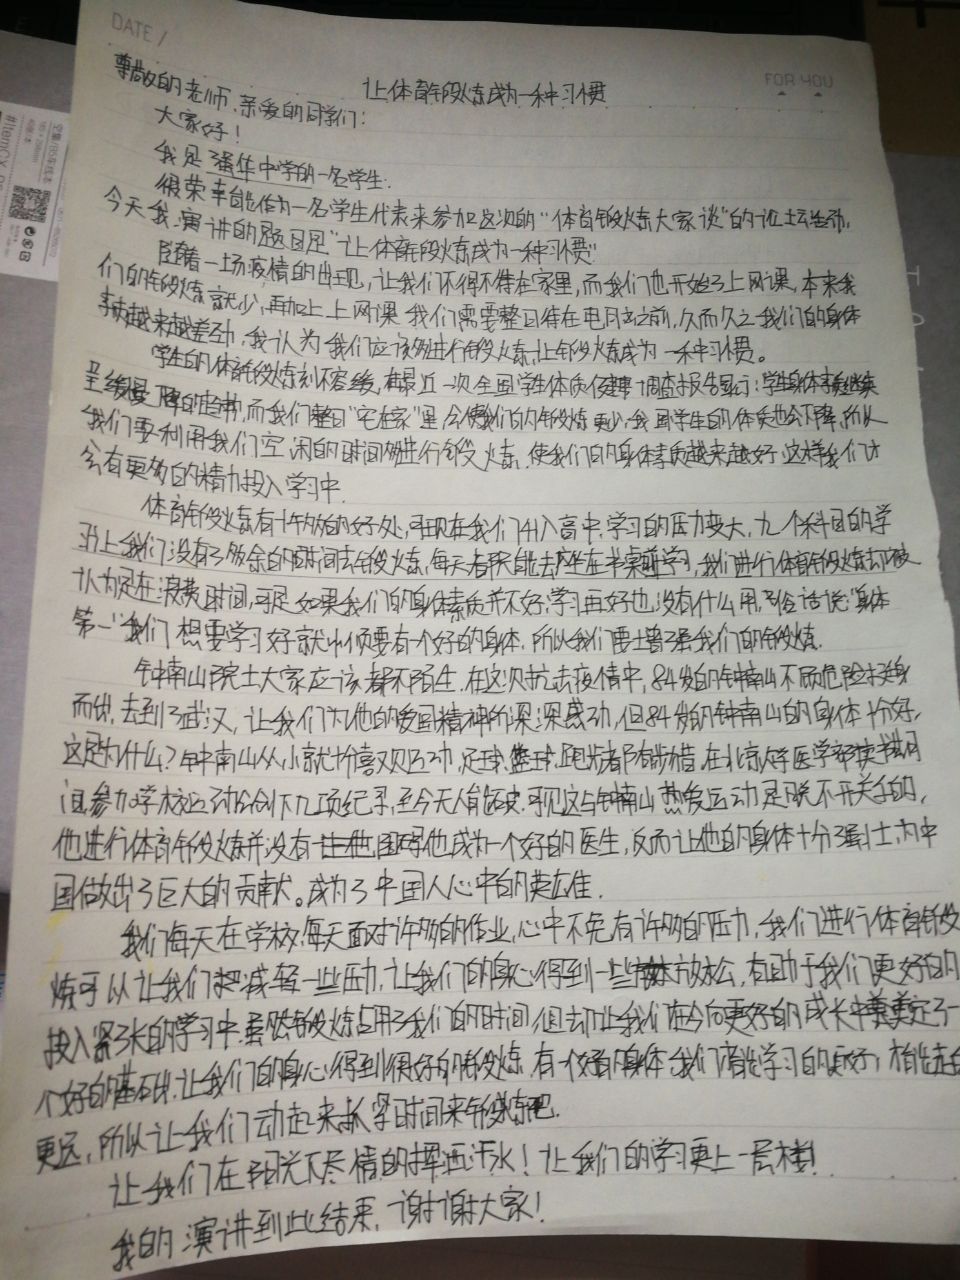 DATE /
FOR YOU
让体育锻炼成为一种习惯
尊敬的老师、亲爱的同学们:
大家好!
我是强华中学的一名学生.
很荣幸能作为一名学生代表来参加这次的“体育锻炼大家谈”的论坛活动,
今天我演讲的题目是“让体育锻炼成为一种习惯”
随着一场疫情的出现,让我们不得不待在家里,而我们也开始了上网课,本来我
们的锻炼就少,再加上上网课我们需要整日待在电脑之前,久而久之我们的身体
素质越来越差劲,我认为我们应该多进行锻炼,让锻炼成为一种习惯。
学生的体育锻炼刻不容缓,有最近一次全国学生体质健康调查报告显示:学生身体素质继续
呈缓慢下降的趋势,而我们整日“宅在家”里,会使我们的锻炼更少,我国学生的体质也会下降,所以
我们要利用我们空闲的时间多进行锻炼,使我们的身体素质越来越好,这样我们才
会有更多的精力投入学习中.
体育锻炼有十分多的好处,可现在我们升入高中,学习的压力变大,九个科目的学
习上我们没有了多余的时间去锻炼,每天都只能去坐在书桌前学习,我们进行体育锻炼却被
认为是在浪费时间,可是如果我们的身体素质并不好,学习再好也没有什么用,俗话说:“身体
第一”我们想要学习好就必须要有一个好的身体.所以我们要增强我们的锻炼.
钟南山院士大家应该都不陌生.在这次抗击疫情中,84岁的钟南山不顾危险挺身
而出,去到了武汉,让我们为他的爱国精神所深深感动,但84岁的钟南山的身体十分好,
这是为什么?钟南山从小就十分喜欢运动,足球、篮球、跑步都有所涉猎.在北京大学医学部读书期
间,参加学校运动会创下九项纪录,至今无人能破.可见这与钟南山热爱运动是脱不开关系的,
他进行体育锻炼并没有让他 他成为一个好的医生,反而让他的身体十分强壮,为中
国做出了巨大的贡献。成为了中国人心中的英雄.
我们每天在学校,每天面对许多的作业,心中不免有许多的压力,我们进行体育锻
炼可以让我们减轻一些压力,让我们的身心得到一些放松,有助于我们更好的
投入紧张的学习中.虽然锻炼占用了我们的时间,但却让我们在今后更好的成长中奠定了一
个好的基础.让我们的身心得到很好的锻炼.有一个好的身体,我们才能学习的更好,才能走的
更远,所以让我们动起来抓紧时间来锻炼吧.
让我们在阳光下尽情的挥洒汗水!让我们的学习更上一层楼!
我的演讲到此结束,谢谢大家!